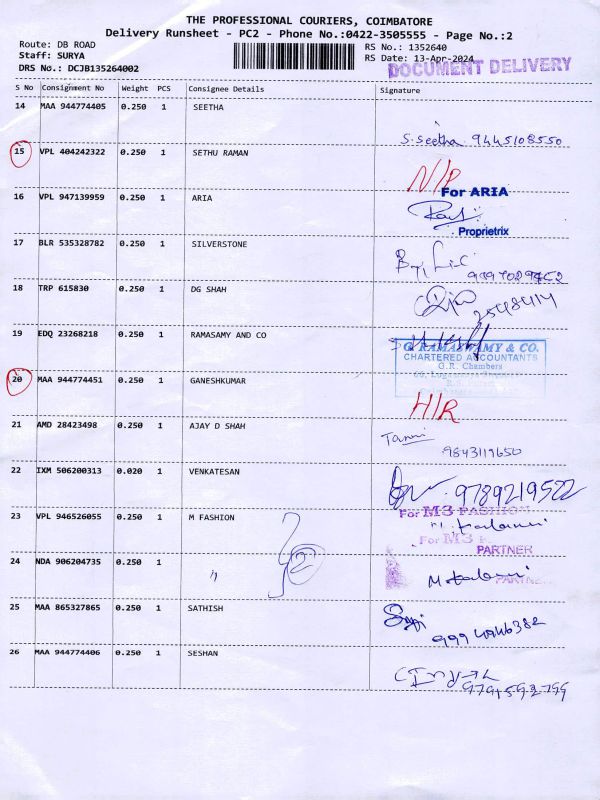 THE PROFESSIONAL COURIERS, COIMBATORE
Delivery Runsheet - PC2 - Phone No.:0422-3505555 - Page No.:2
Route: DB ROAD
RS No.: 1352640
Staff: SURYA
RS Date: 13-Apr-2024
DRS No.: DCJB135264002
DOCUMENT DELIVERY
S No Consignment No Weight PCS Consignee Details Signature
14 MAA 944774405 0.250 1 SEETHA
S. Seetha 9445108550
15 VPL 404242322 0.250 1 SETHU RAMAN
N/P
For ARIA
16 VPL 947139959 0.250 1 ARIA
Proprietrix
17 BLR 535328782 0.250 1 SILVERSTONE
18 TRP 615830 0.250 1 DG SHAH
19 EDQ 23268218 0.250 1 RAMASAMY AND CO
G. RAMASWAMY & CO.
CHARTERED ACCOUNTANTS
G.R. Chambers
20 MAA 944774451 0.250 1 GANESHKUMAR
H/R
21 AMD 28423498 0.250 1 AJAY D SHAH
9843119650
22 IXM 506200313 0.020 1 VENKATESAN
9789219522
For M3 FASHION
23 VPL 946526055 0.250 1 M FASHION
For M3
PARTNER
2
24 NDA 906204735 0.250 1 "
PARTNE
25 MAA 865327865 0.250 1 SATHISH
26 MAA 944774406 0.250 1 SESHAN
9791592799